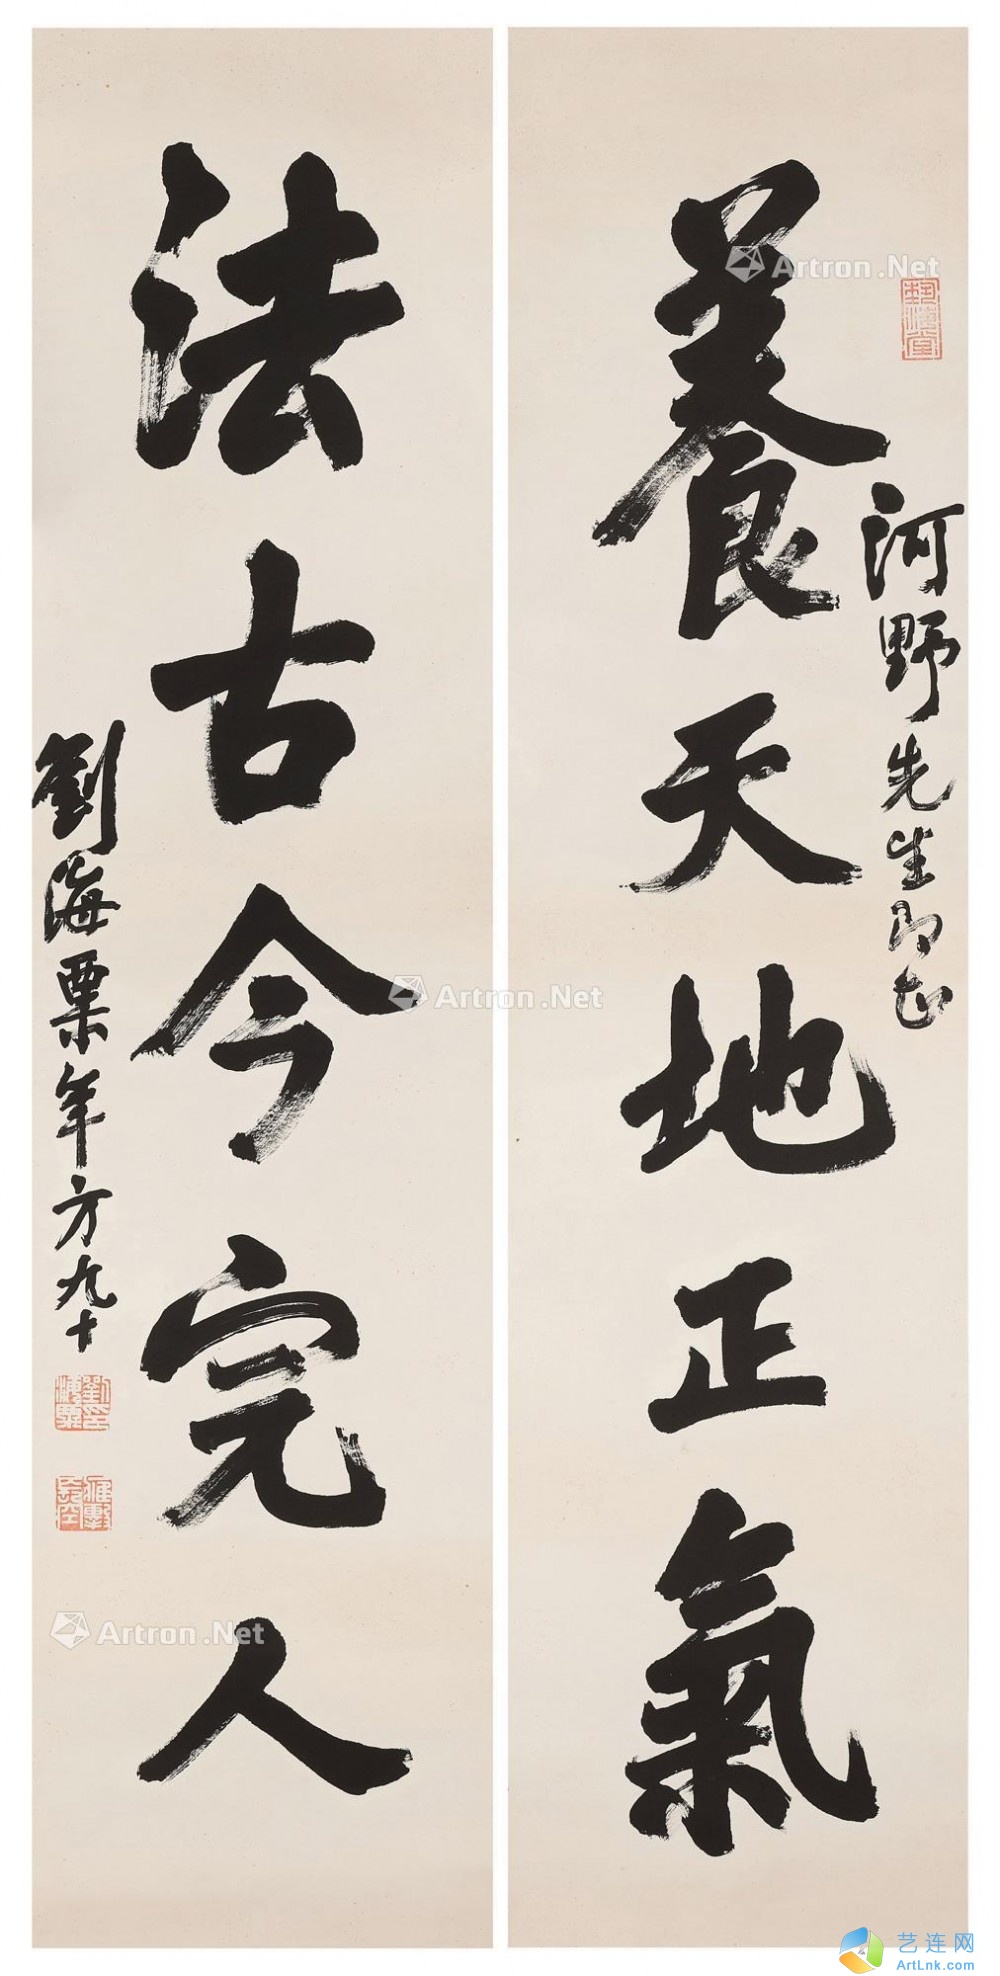 養天地正氣
河野先生即正
法古今完人
劉海粟年方九十
Artron.Net
Artron.Net
Artron.Net
艺连网
ArtLnk.com